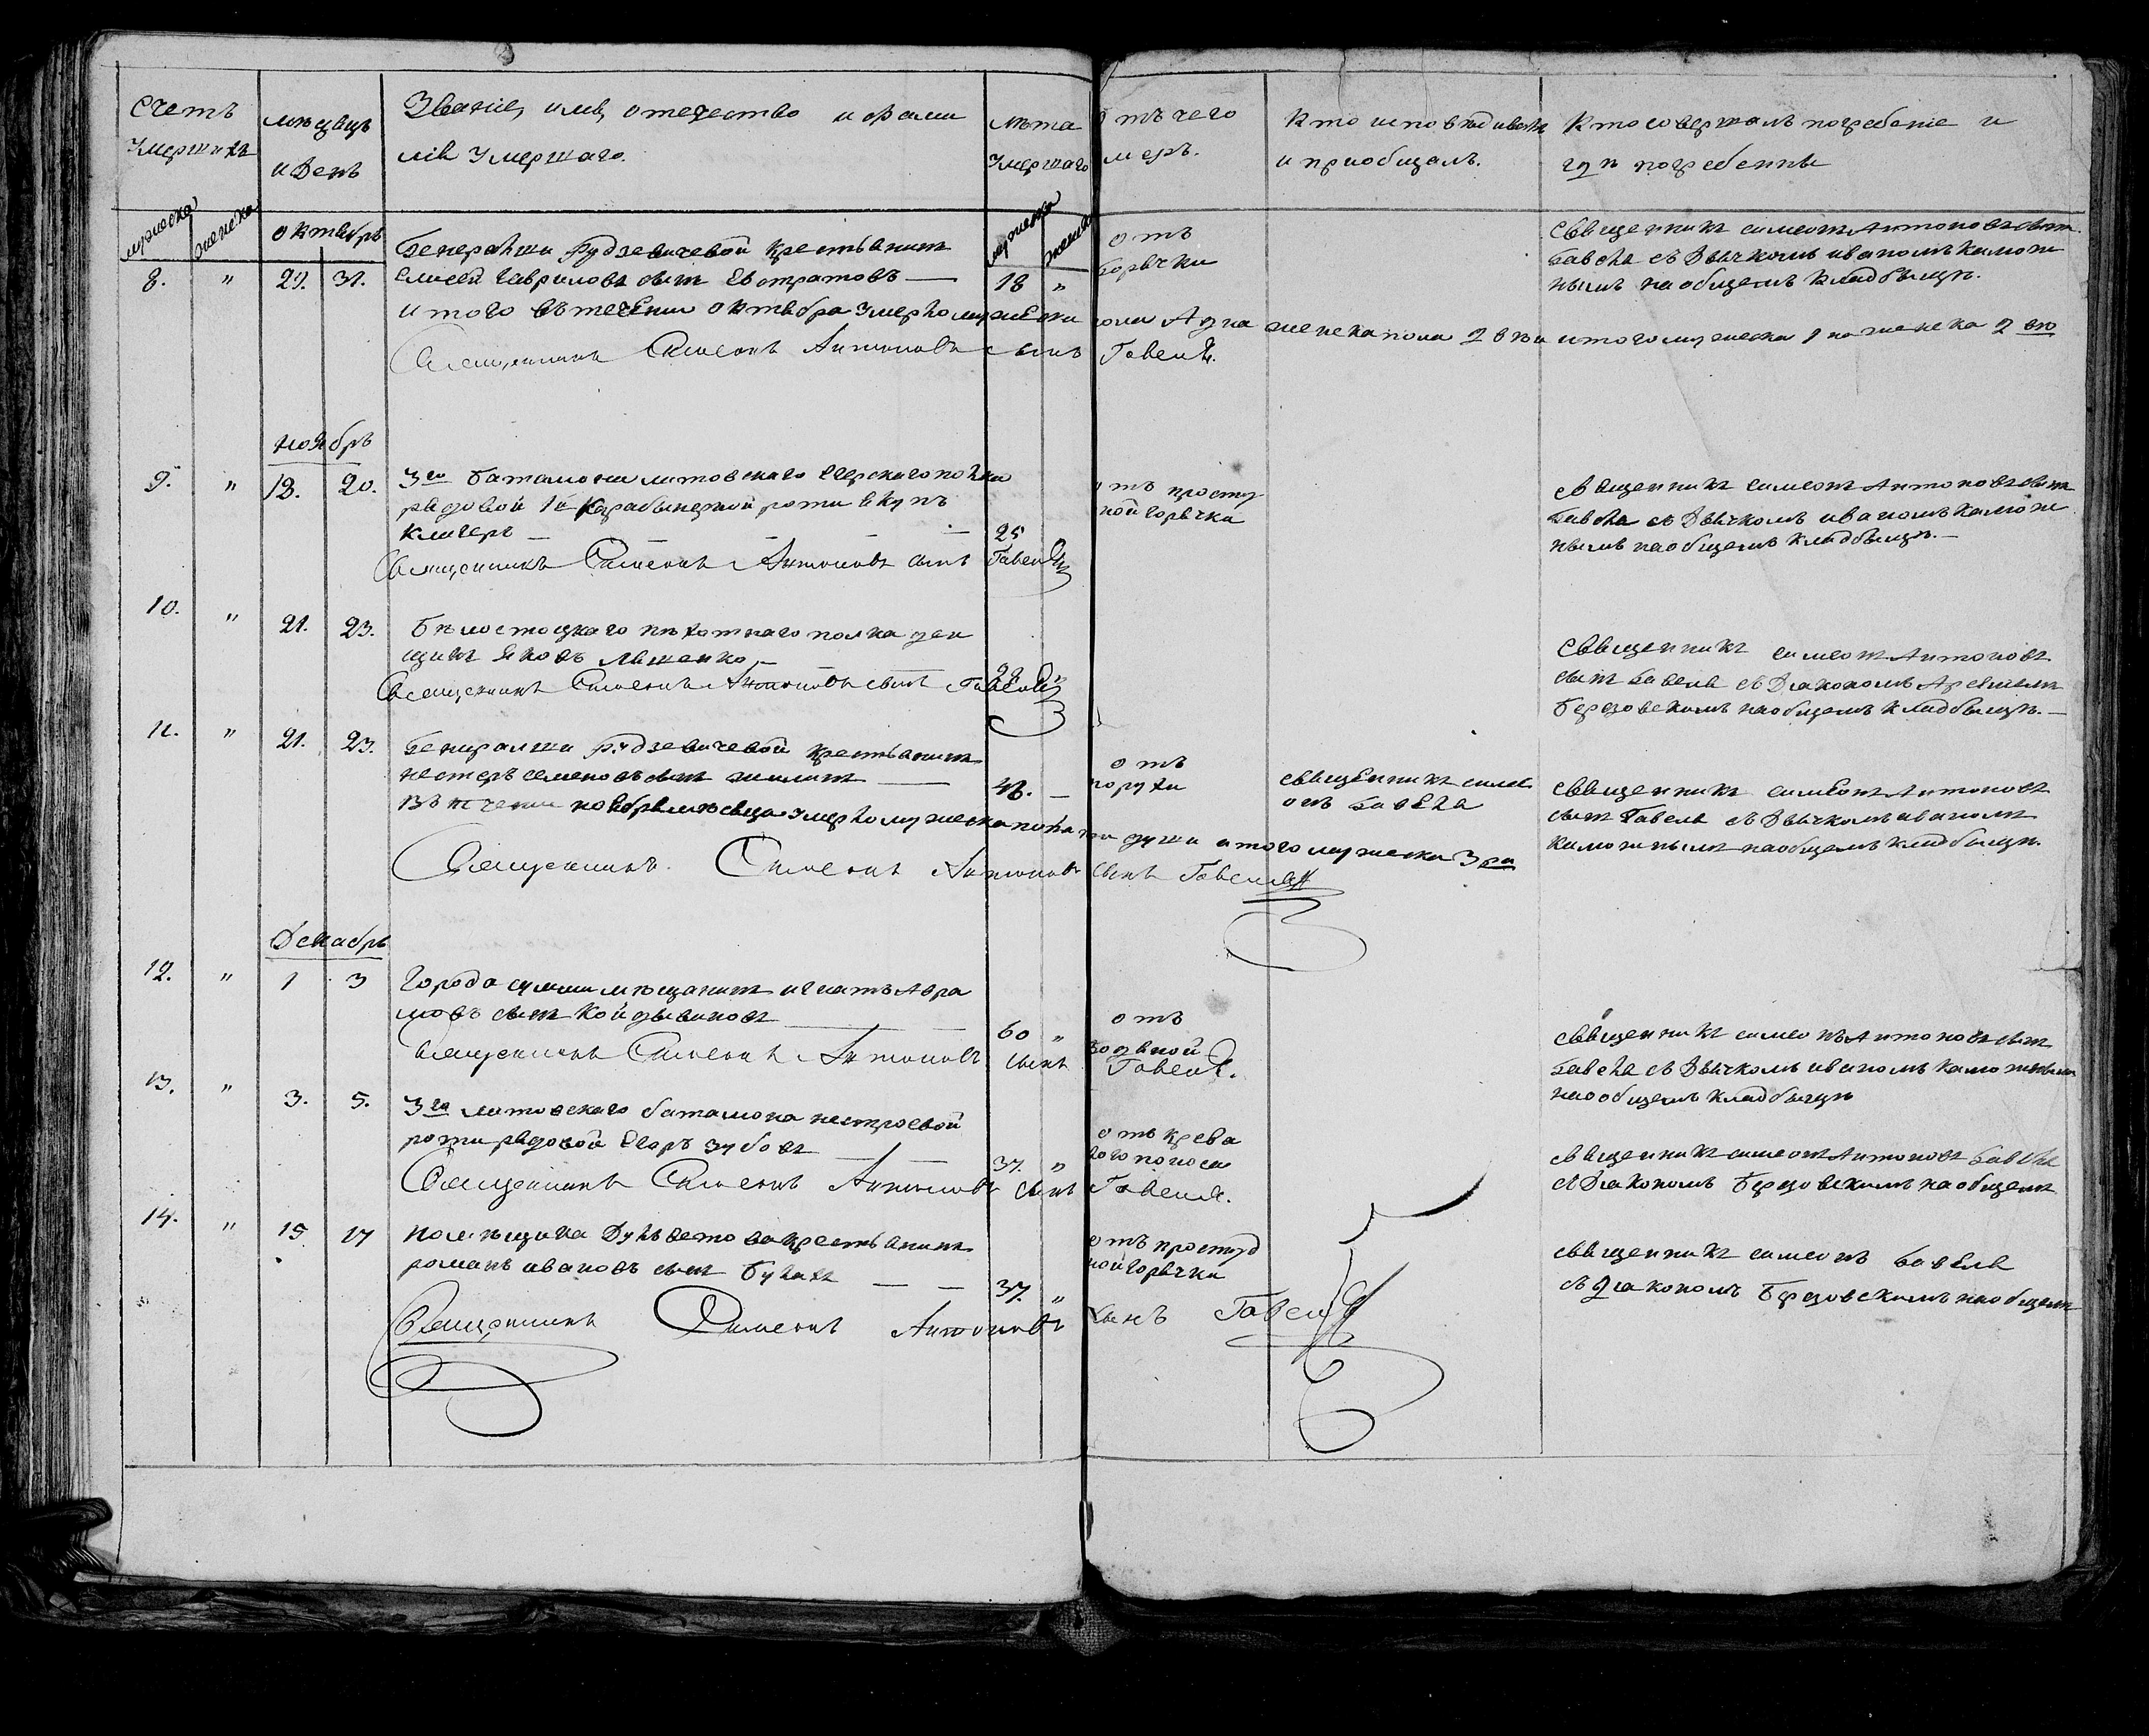 Счетъ умершихъ
мѣсяцъ и день
Званіе, имя, отечество и фами
лія умершаго.
лѣта умершаго
отъ чего
меръ.
Кто исповѣдивалъ
и приобщалъ.
Кто совершалъ погребеніе и
гдѣ погребенны
мужеска
женска
мужеска
женска
октябрь
8. " 29. 31.
Генеральши Рудзевичевой крестьянинъ
елисей Гавриловъ сынъ Евстратовъ — 18 "
отъ
горячки
священникъ симеонъ Антоновъ сынъ
Гавеля съ Дьячкомъ иваномъ камож
нымъ на общемъ кладбыщѣ.
итого въ течении октября умерло мужеска пола 1 дна женска пола 2 вѣи итого мужеска 1 на женска 2 вѣ
Священникъ Симеонъ Антоновъ сынъ Гавеля.
ноябрь
9. " 18. 20.
3го баталиона литовского Егерского полка
рядовой 1й карабынерной роти якупъ
кличеръ — 25
отъ простуд
ной горячки
священникъ симеонъ Антоновъ сынъ
Гавеля съ Дьячкомъ иваномъ камож
нымъ на общемъ кладбыщѣ.—
Священникъ Симеонъ Антоновъ сынъ Гавеля
10. " 21. 23.
Бѣлостоцкаго пѣхотнаго полка ден
щикъ Яковъ Ляшенко —
священникъ симеонъ Антоновъ
сынъ Гавеля съ Диакономъ Арсѣниемъ
Березовскимъ на общемъ кладбыщѣ.—
Священникъ Симеонъ Антоновъ сынъ Гавеля
11. " 21. 23.
Генералши Рудзевичевой крестьянинъ
нестеръ семеновъ сынъ жилинъ — 48. —
отъ
порухи
священникъ симе
онъ Гавеля
священникъ симеонъ Антоновъ
сынъ Гавеля съ Дьячкомъ иваномъ
каможнымъ на общемъ кладбыщѣ.
въ течении ноября мѣсяца умерло мужеска пола три души итого мужеска 3 ри
Священникъ Симеонъ Антоновъ сынъ Гавеля
Декабрь
12. " 1 3
Города сумми мѣщанинъ игнатъ Авра
мовъ сынъ Койдывановъ — 60 "
отъ
водяной
священникъ симеонъ Антоновъ сынъ
Гавеля съ Дьячкомъ иваномъ каможнымъ
на общемъ кладбыщѣ
Священникъ Симеонъ Антоновъ сынъ Гавеля.
13. " 3. 5.
3го литовского баталиона нестроевой
роти рядовой Егоръ зубовъ — 37. "
отъ крева
вого поноса
священникъ симеонъ Антоновъ Гавеля
съ Диакономъ Березовскимъ на общемъ
Священникъ Симеонъ Антоновъ сынъ Гавеля.
14. " 15 17
помѣщика Дульветова крестьянинъ
романъ ивановъ сынъ Булахъ — 37. "
отъ простуд
ной горячки
священникъ симеонъ Гавеля
съ Диакономъ Березовскимъ на общемъ
Священникъ Симеонъ Антоновъ сынъ Гавеля